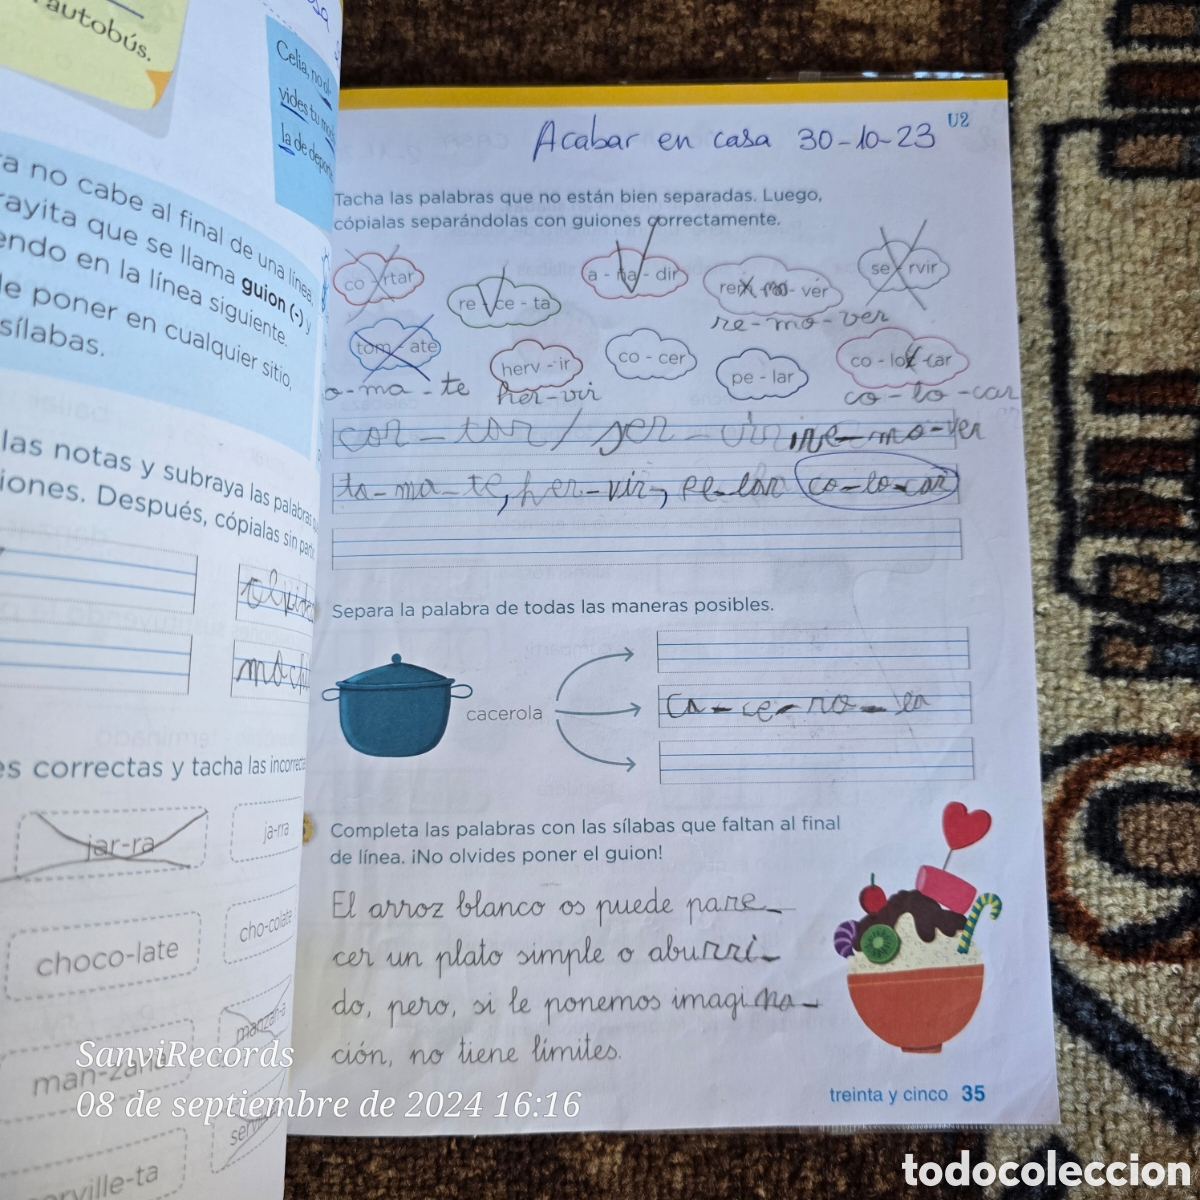 autobús.
Celia, no ol-
vides tu mochi-
la de deporte
no cabe al final de una línea,
rayita que se llama guion (-) y
endo en la línea siguiente.
de poner en cualquier sitio,
sílabas.
las notas y subraya las palabras
iones. Después, cópialas sin partir
es correctas y tacha las incorrectas
jar-ra
ja-rra
choco-late
cho-colate
man-zana
manzan-a
erville-ta
Acabar en casa 30-10-23
U2
Tacha las palabras que no están bien separadas. Luego,
cópialas separándolas con guiones correctamente.
co - rtar
re - ce - ta
a - ña - dir
rem - o - ver
se - rvir
re-mo-ver
tom - ate
herv - ir
co - cer
pe - lar
co - loc - ar
o-ma-te
her-vir
co-lo-car
cor-tar/ser-vir re-mo-ver
to-ma-te, her-vir, pe-lar co-lo-car
Separa la palabra de todas las maneras posibles.
cacerola
ca-ce-ro-la
Completa las palabras con las sílabas que faltan al final
de línea. ¡No olvides poner el guion!
El arroz blanco os puede pare-
cer un plato simple o aburri-
do, pero, si le ponemos imagina-
ción, no tiene límites.
treinta y cinco 35
SanviRecords
08 de septiembre de 2024 16:16
todocoleccion